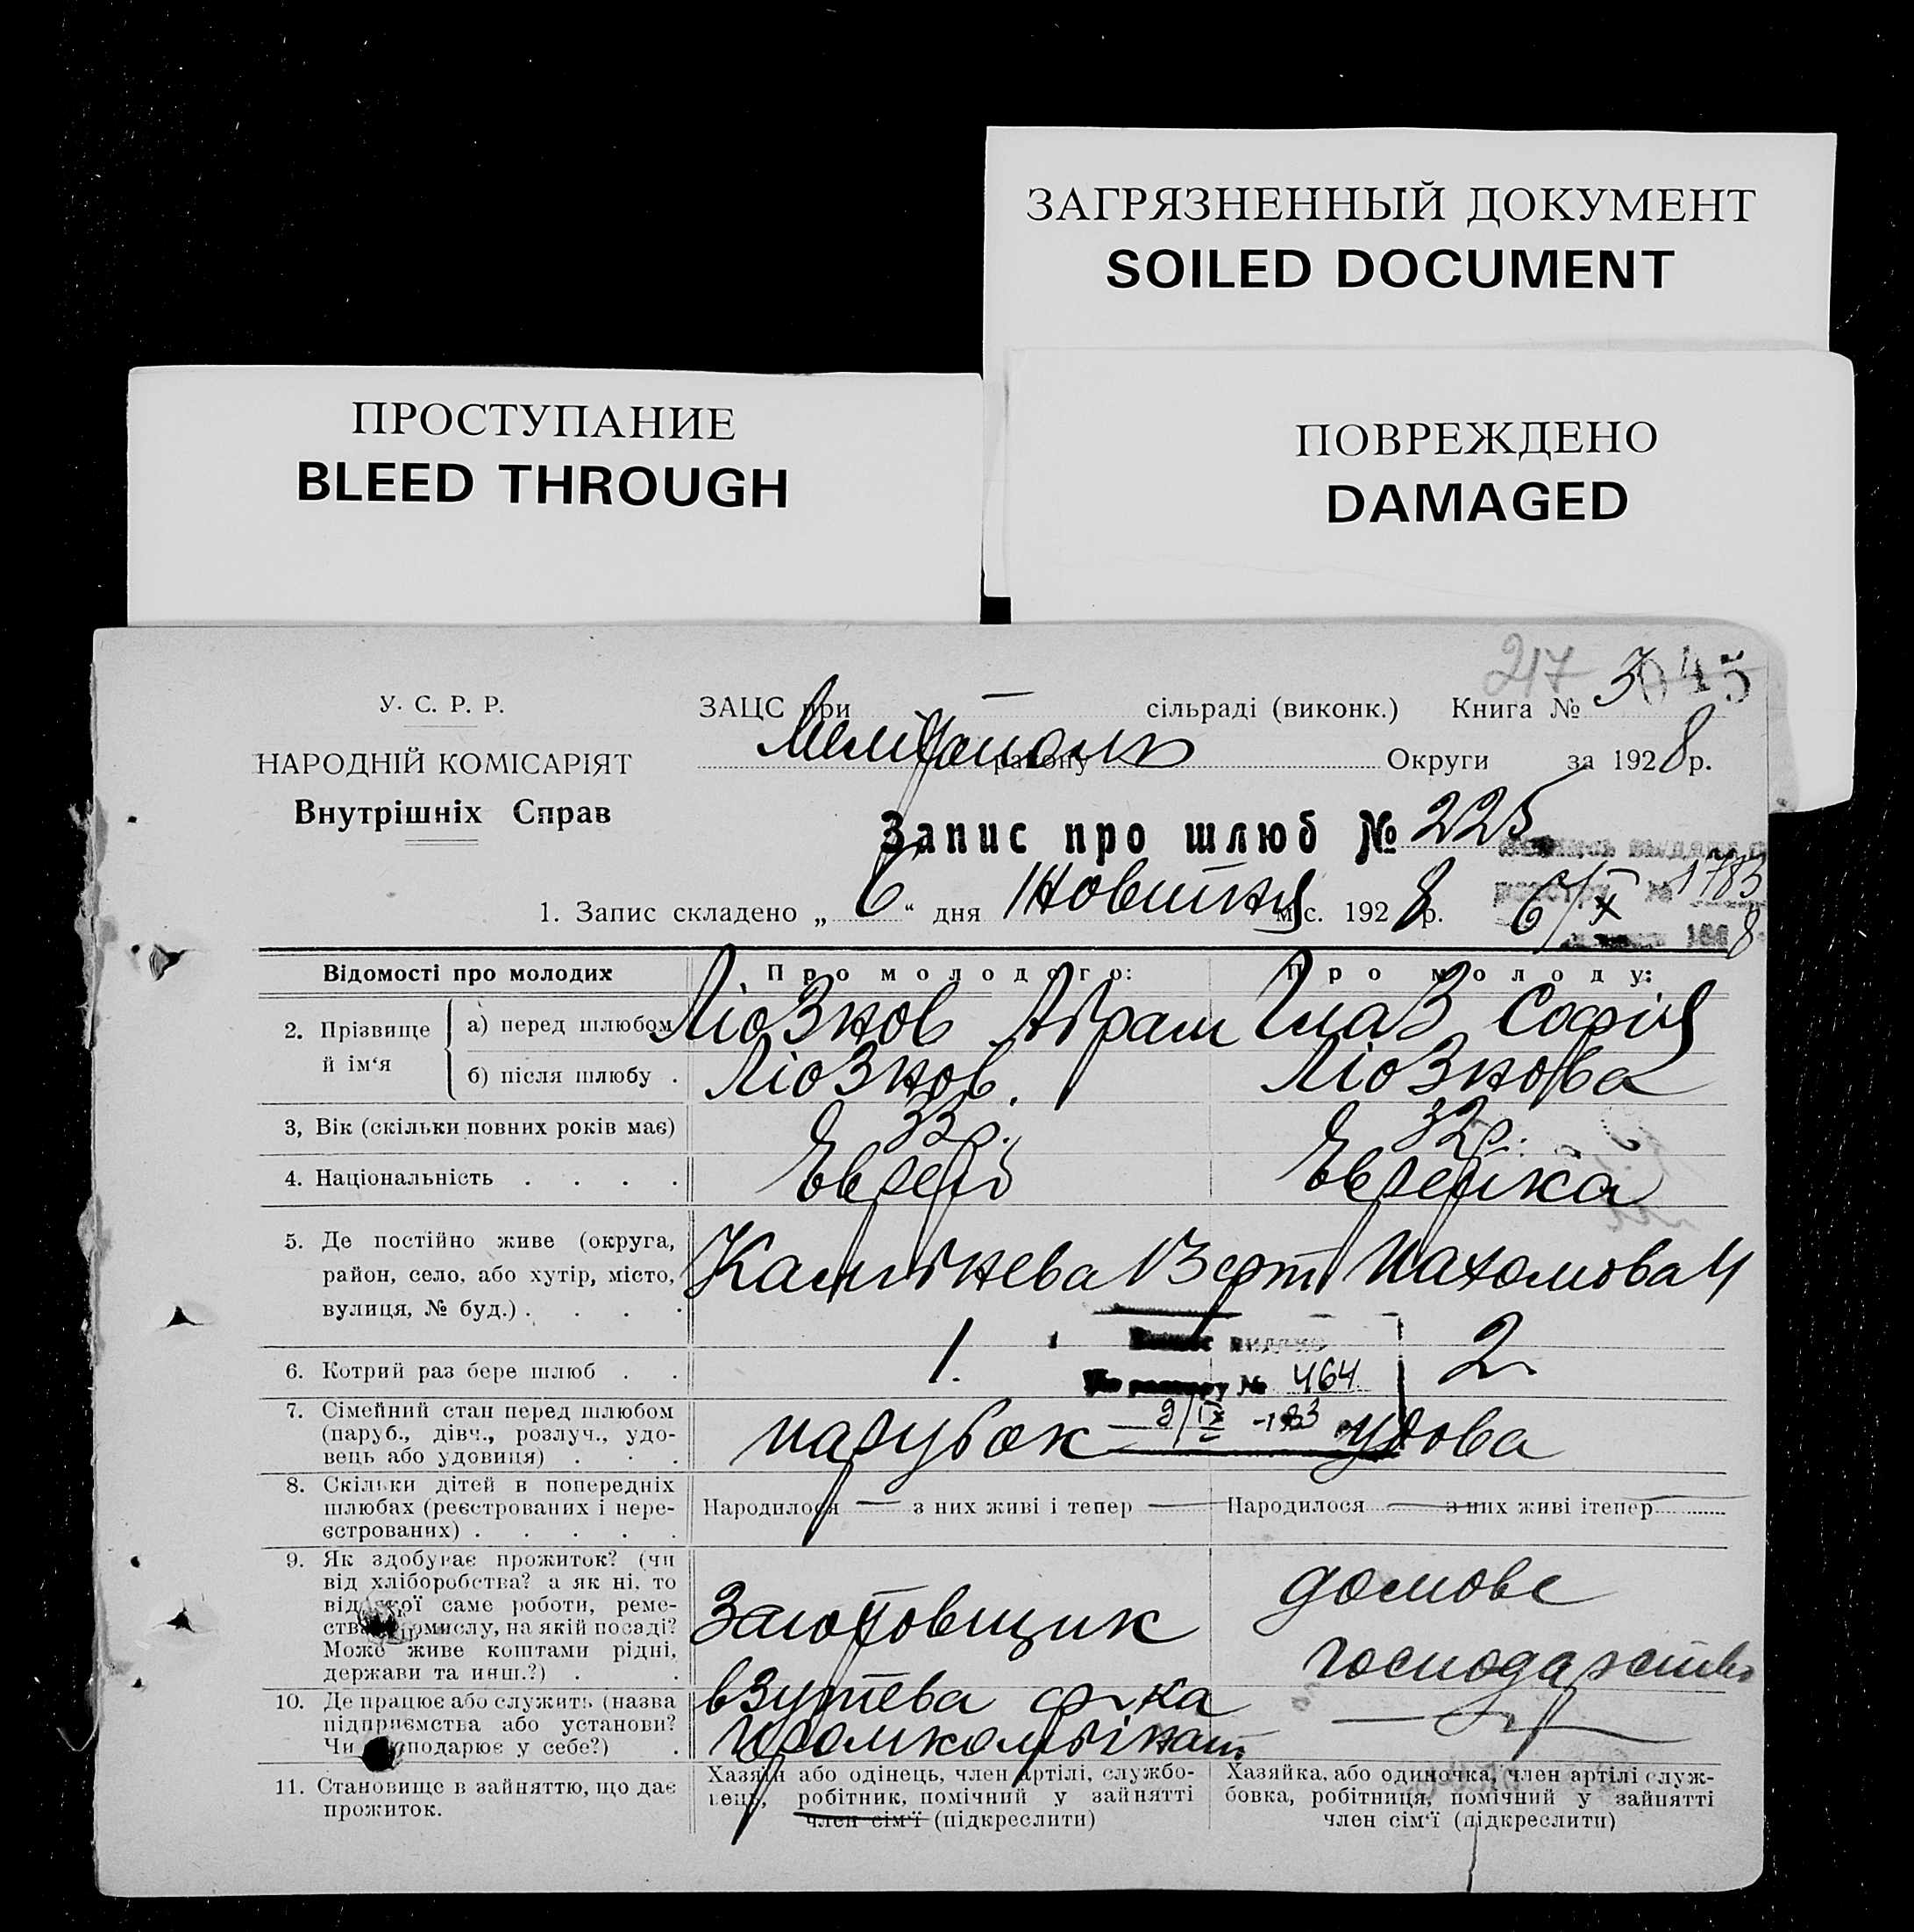 ЗАГРЯЗНЕННЫЙ ДОКУМЕНТ
SOILED DOCUMENT
ПРОСТУПАНИЕ
BLEED THROUGH
ПОВРЕЖДЕНО
DAMAGED
217
У. С. Р. Р.
НАРОДНІЙ КОМІСАРІЯТ
Внутрішніх Справ
ЗАЦС при — сільраді (виконк.) Книга № 3045
району Округи за 1928 р.
Запис про шлюб № 225
1. Запис складено „ 6 “ дня Жовтня міс. 1928 р.
№ 1783
6/X 8
Відомості про молодих
Про молодого:
Про молоду:
2. Прізвище й ім‘я
а) перед шлюбом
Ліознов Абрам
Глаз Софія
б) після шлюбу .
Ліознов.
Ліознова
3, Вік (скільки повних років має)
33 р.
32 р.
4. Національність . . . .
Еврей
Еврейка
5. Де постійно живе (округа,
район, село, або хутір, місто,
вулиця, № буд.) . . . .
Камінева 13
Пахомова 4
6. Котрий раз бере шлюб . .
1.
2
видано
№ 464
7. Сімейний стан перед шлюбом
(паруб., дівч., розлуч., удо-
вець або удовиця) . . .
парубок
удова
8. Скільки дітей в попередніх
шлюбах (реєстрованих і нере-
єстрованих) . . . . .
Народилося — з них живі і тепер —
Народилося — з них живі ітепер
9. Як здобуває прожиток? (чи
від хліборобства? а як ні, то
від якої саме роботи, реме-
ства, промислу, на якій посаді?
Може живе коштами рідні,
держави та инш.?) . .
Заготовщик
домове
господарство
10. Де працює або служить (назва
підприємства або установи?
Чи господарює у себе?) .
взутева ф-ка
Промкомбінат
—
11. Становище в зайняттю, що дає
прожиток.
Хазяїн або одінець, член артілі, службо-
вець, робітник, помічний у зайнятті
член сім‘ї (підкреслити)
Хазяйка, або одиночка, член артілі служ-
бовка, робітниця, помічний у зайнятті
член сім‘ї (підкреслити)